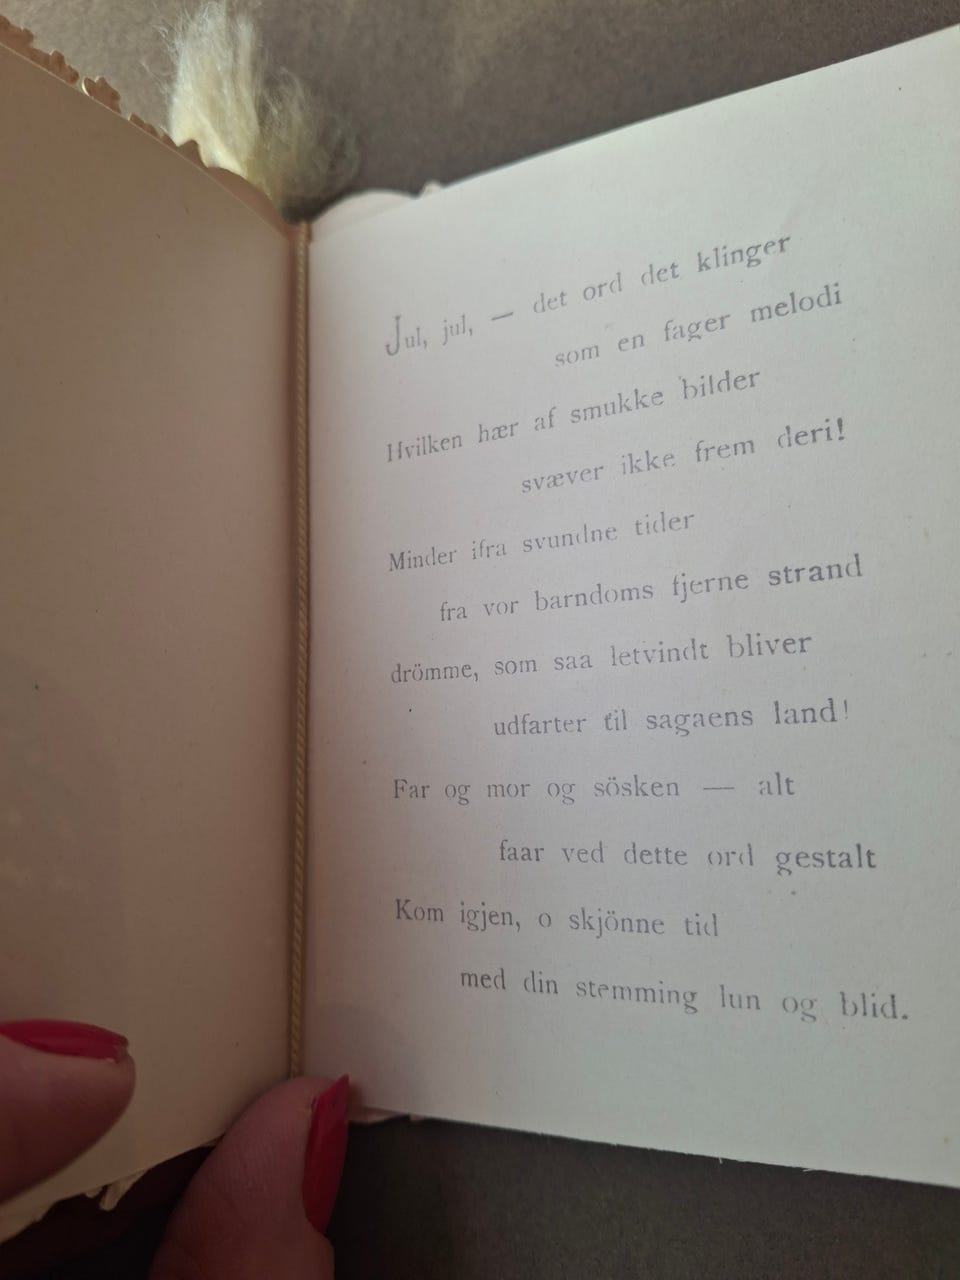 Jul, jul, — det ord det klinger
som en fager melodi
Hvilken hær af smukke bilder
svæver ikke frem deri!
Minder ifra svundne tider
fra vor barndoms fjerne strand
drömme, som saa letvindt bliver
udfarter til sagaens land!
Far og mor og sösken — alt
faar ved dette ord gestalt
Kom igjen, o skjönne tid
med din stemming lun og blid.